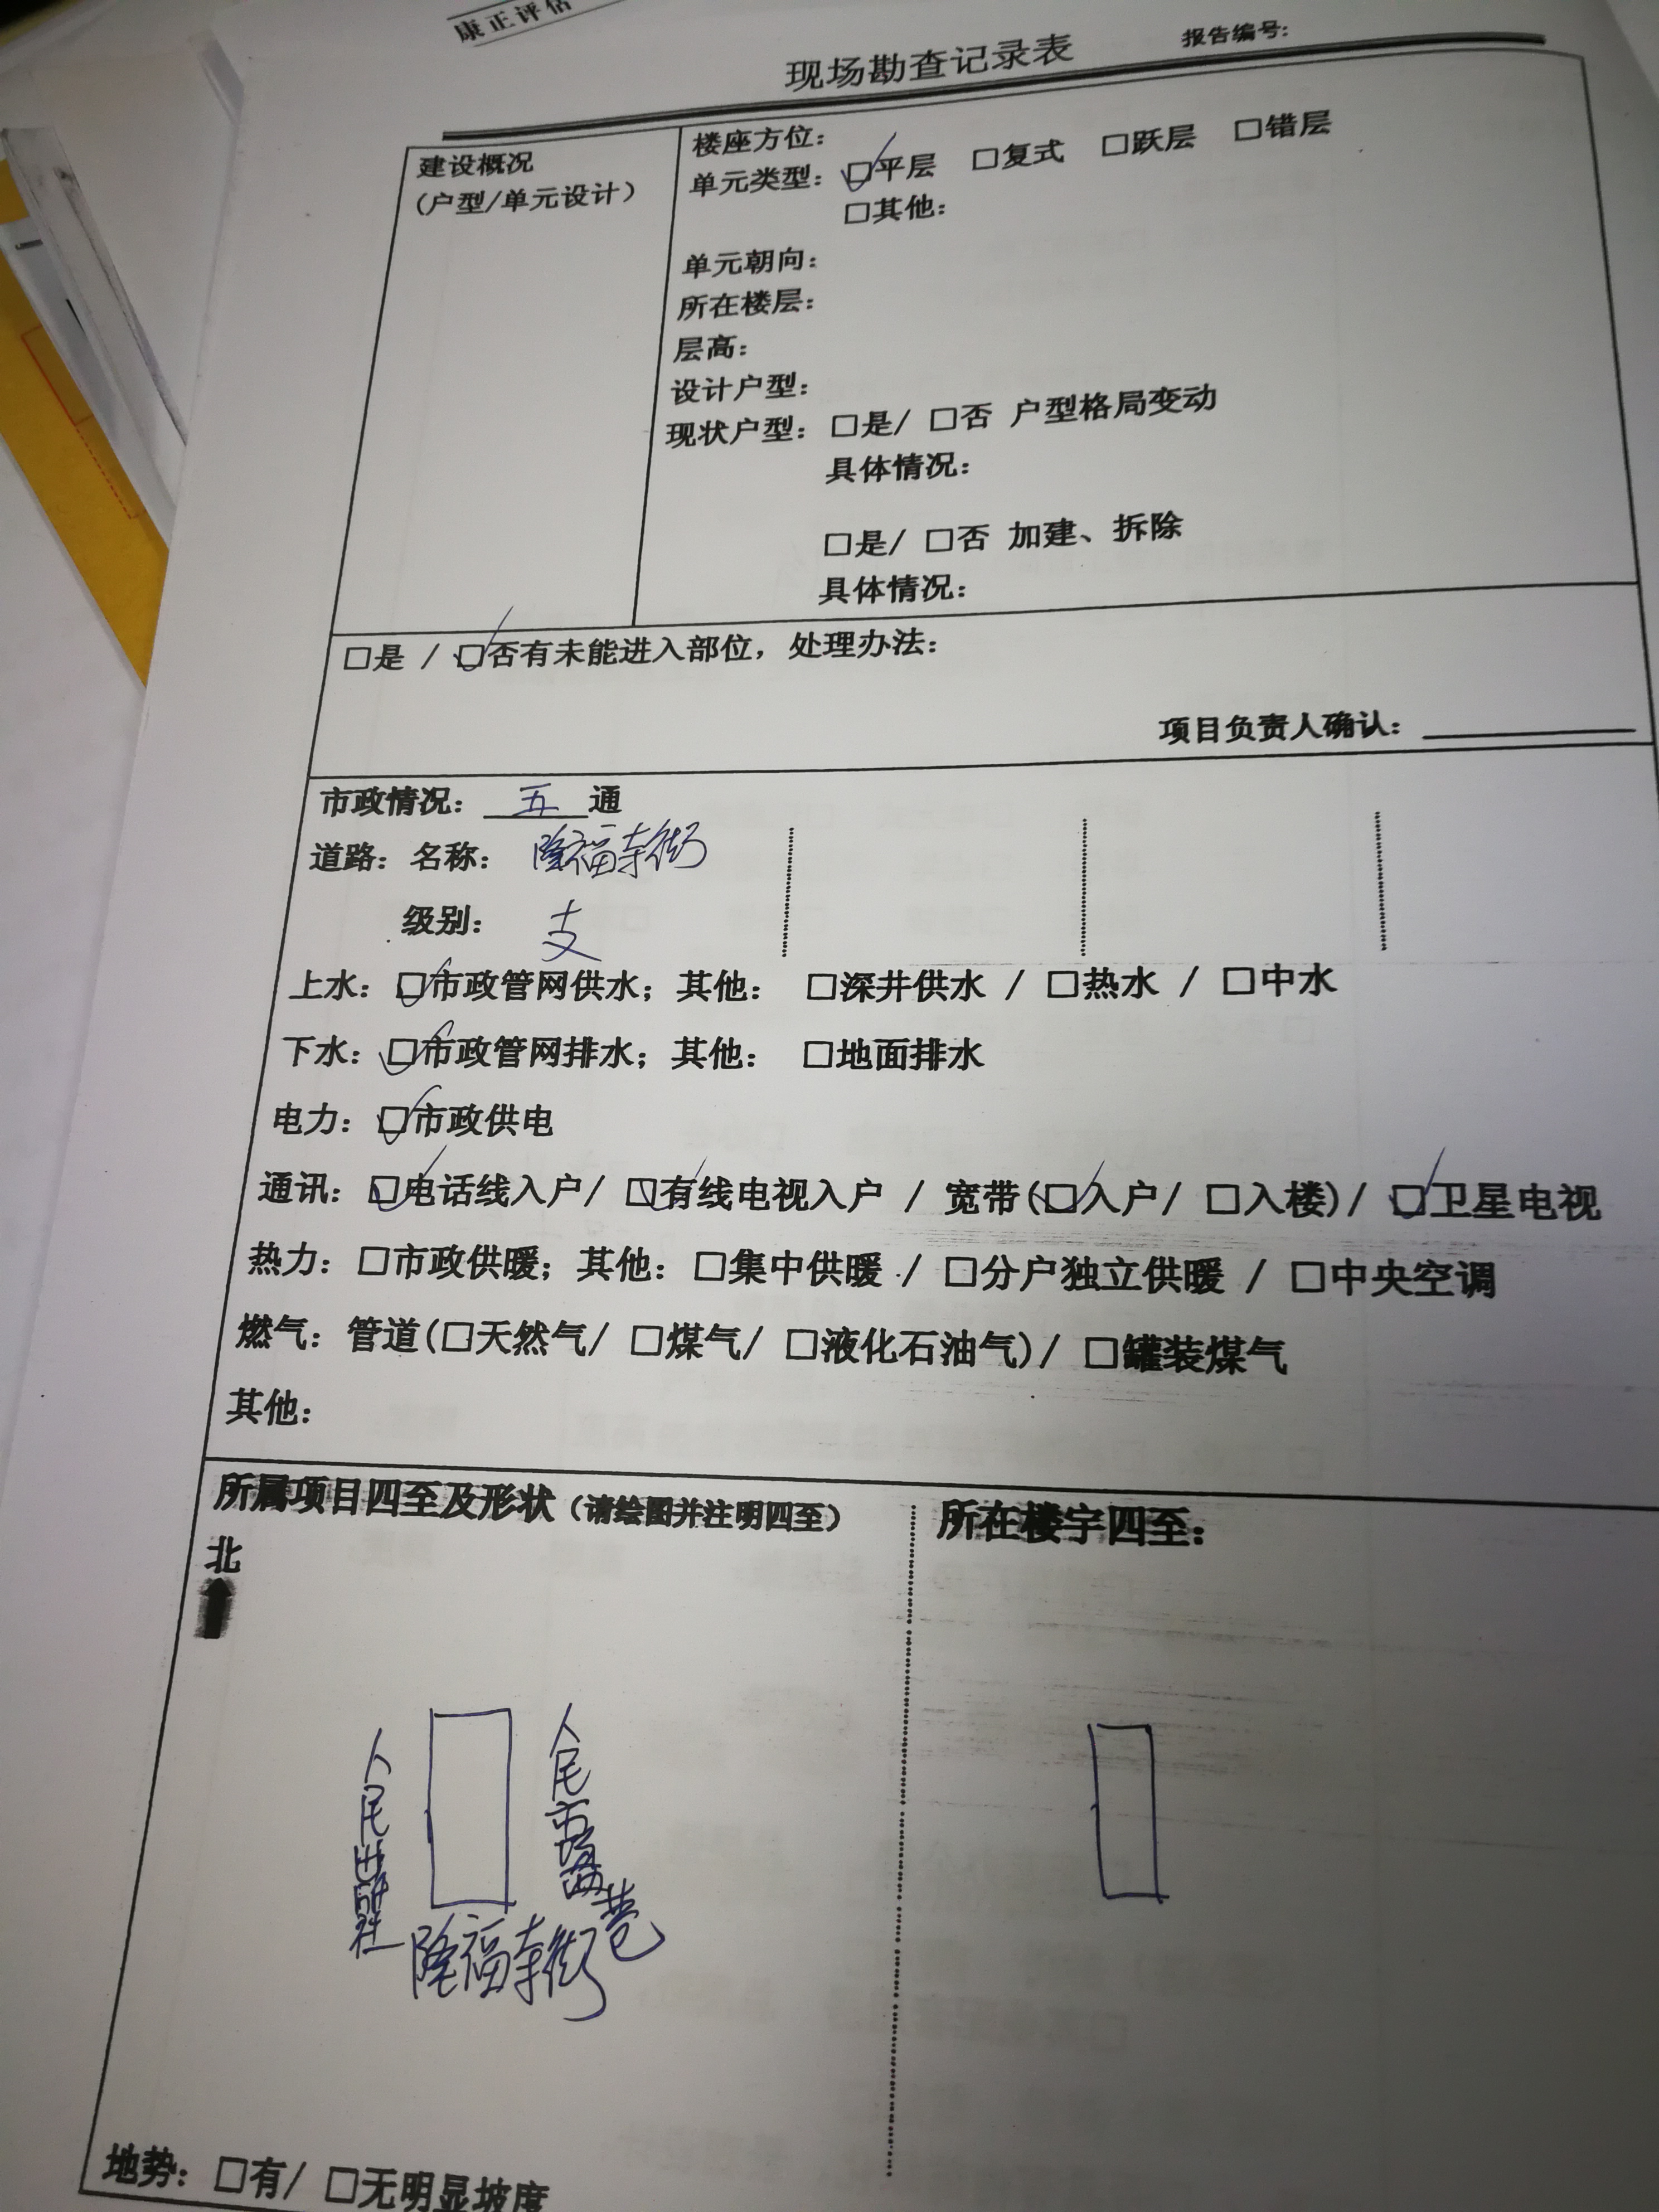 康正评估
现场勘查记录表
报告编号:
建设概况
(户型/单元设计)
楼座方位:
单元类型: ☑平层 □复式 □跃层 □错层
□其他:
单元朝向:
所在楼层:
层高:
设计户型:
现状户型: □是/ □否 户型格局变动
具体情况:
□是/ □否 加建、拆除
具体情况:
□是 / ☑否有未能进入部位, 处理办法:
项目负责人确认:
市政情况: 五 通
道路: 名称: 隆福寺街
级别: 支
上水: ☑市政管网供水; 其他: □深井供水 / □热水 / □中水
下水: ☑市政管网排水; 其他: □地面排水
电力: ☑市政供电
通讯: ☑电话线入户/ ☑有线电视入户 / 宽带(☑入户/ □入楼)/ ☑卫星电视
热力: □市政供暖; 其他: □集中供暖 / □分户独立供暖 / □中央空调
燃气: 管道(□天然气/ □煤气/ □液化石油气)/ □罐装煤气
其他:
所属项目四至及形状 (请绘图并注明四至)
北
人民出版社
人民市场西巷
隆福寺街
所在楼宇四至:
地势: □有/ □无明显坡度